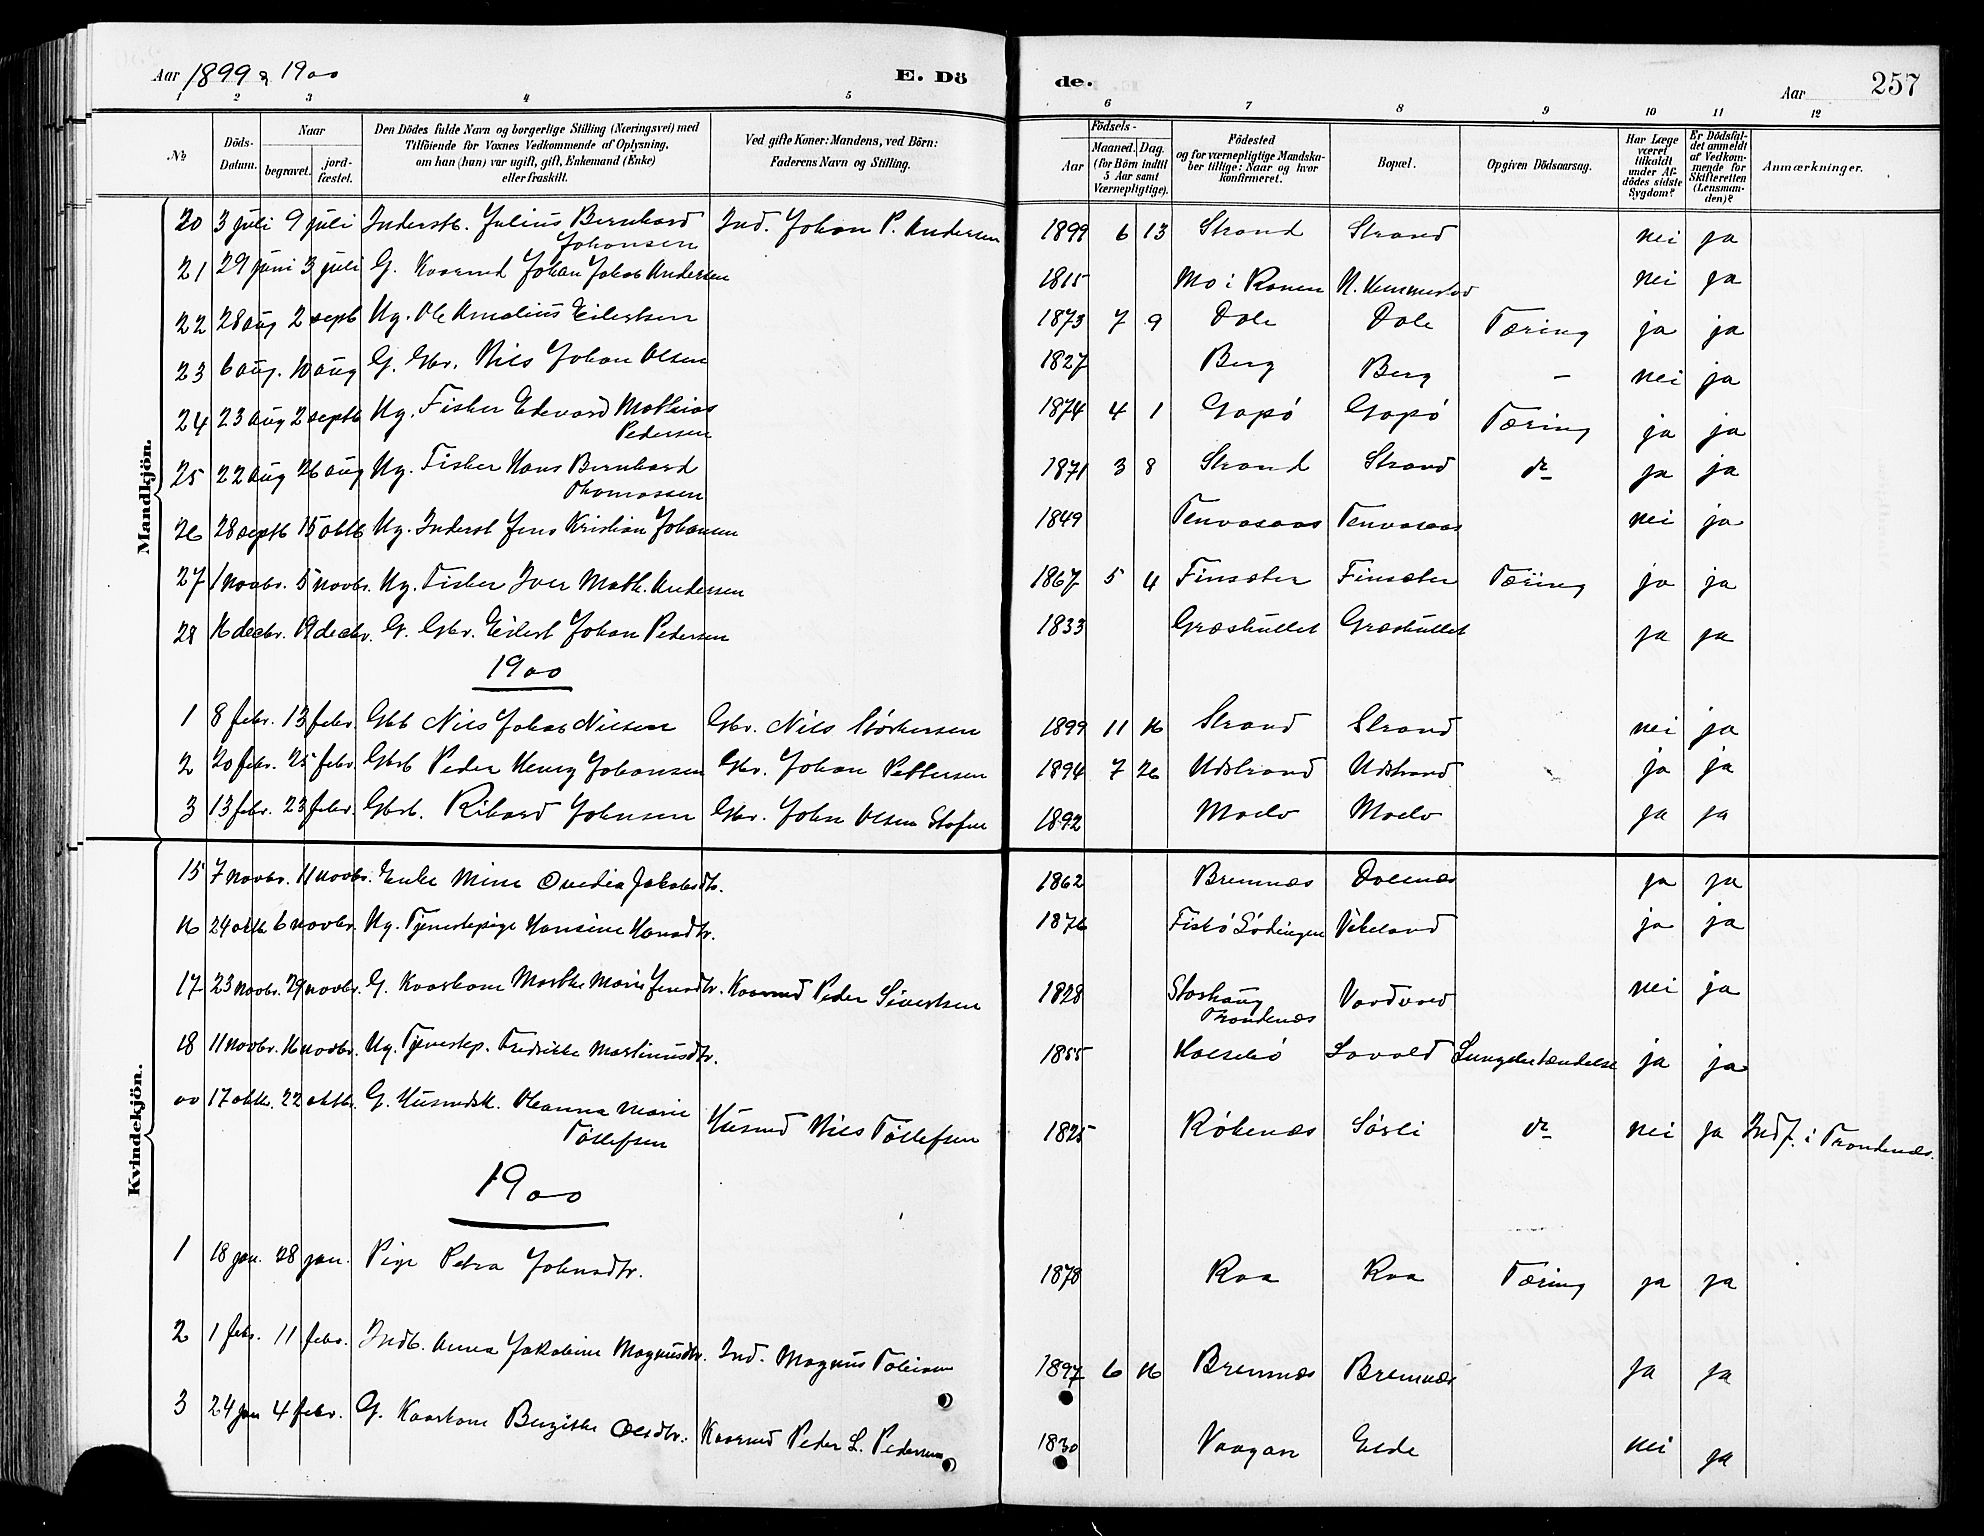 Aar 1899 & 1900
E. Dö
de.
Aar
257
1 2 3 4 5 6 7 8 9 10 11 12
No
Döds-Datum.
Naar
begravet.
jord-fæstet.
Den Dödes fulde Navn og borgerlige Stilling (Næringsvei) med
Tilföiende for Voxnes Vedkommende af Oplysning,
om han (hun) var ugift, gift, Enkemand (Enke)
eller fraskilt.
Ved gifte Koner: Mandens, ved Börn:
Faderens Navn og Stilling.
Födsels-
Aar
Maaned. Dag.
(for Börn indtil
5 Aar samt
Værnepligtige).
Födested
og for værnepligtige Mandska-
ber tillige: Naar og hvor
konfirmeret.
Bopæl.
Opgiven Dödsaarsag.
Har Læge
været
tilkaldt
under Af-
dödes sidste
Sygdom?
Er Dödsfal-
det anmeldt
af Vedkom-
mende for
Skifteretten
(Lensman-
den)?
Anmærkninger.
Mandkjön.
20 3 juli 9 juli Inderstb. Julius Bernhard Johansen Ind. Johan P. Andersen 1899 6 13 Strand Strand nei ja
21 29 juni 3 juli G. Kaarmd Johan Jakob Andersen 1815 Mo i Ranen N. Hemmestad nei ja
22 28 aug 2 septb Ug. Ole Amalius Eilertsen 1873 7 9 Dale Dale Tæring ja ja
23 6 aug. 10 aug G. Gbr. Nils Johan Olsen 1827 Berg Berg - nei ja
24 23 aug 2 septb Ug. Fisker Edevard Mathias Pedersen 1874 4 1 Gapö Gapö Tæring ja ja
25 22 aug 26 aug Ug. Fisker Hans Bernhard Thomassen 1871 3 8 Strand Strand do ja ja
26 28 septb 15 oktb Ug. Inderst Jens Kristian Johansen 1849 Tenvasaas Tenvasaas nei ja
27 1 novbr. 5 novbr. Ug. Fisker Iver Math. Andersen 1867 5 4 Finsæter Finsæter Tæring ja ja
28 16 decbr. 19 decbr. G. Gbr. Eilert Johan Pedersen 1833 Græshullet Græshullet ja ja
1900
1 8 febr. 13 febr. Gbb Nils Johas Nilsen Gbr. Nils Störkersen 1899 11 16 Strand Strand nei ja
2 20 febr. 25 febr. Gbrb Peder Henry Johansen Gbr. Johan Pettersen 1894 7 26 Udstrand Udstrand ja ja
3 13 febr. 23 febr. Gbrb. Rikard Johnsen Gbr. John Olsen 1892 Moelv Moelv ja ja
Kvindekjön.
15 7 novbr. 11 novbr. Enke Mine Ovedia Jakobsdtr. 1862 Bremnæs ja ja
16 24 oktb. 6 novbr. Ug. Tjenestepige Hansine Hansdtr. 1876 Fiskö Lödingen Vikeland ja ja
17 23 novbr. 29 novbr. G. Kaarkone Marthe Marie Jensdtr. Kaarmd Peder Sivertsen 1828 Storhaug Trondenæs nei ja
18 11 novbr. 16 novbr. Ug. Tjenestep. Fredrikke Martinusdtr. 1855 Lavold Lungebetændelse ja ja
oo 17 oktb. 22 oktbr. G. Husmdsk. Oleanna Marie Tollefsen Husmd Nils Tollefsen 1825 Rökenæs Sörli do nei ja Indf. i Trondenæs.
1900
1 18 jan. 28 jan. Pige Petra Johnsdtr. 1878 Raa Raa Tæring ja ja
2 1 febr. 11 febr. Indb. Anna Jakobine Magnusdtr. Ind. Magnus Tobiasen 1897 6 16 Bremnæs Bremnæs ja ja
3 24 jan 4 febr. G. Kaarkone Bergitte Olsdtr. Kaarmd Peder L. Pedersen 1830 Vaagan Elde nei ja